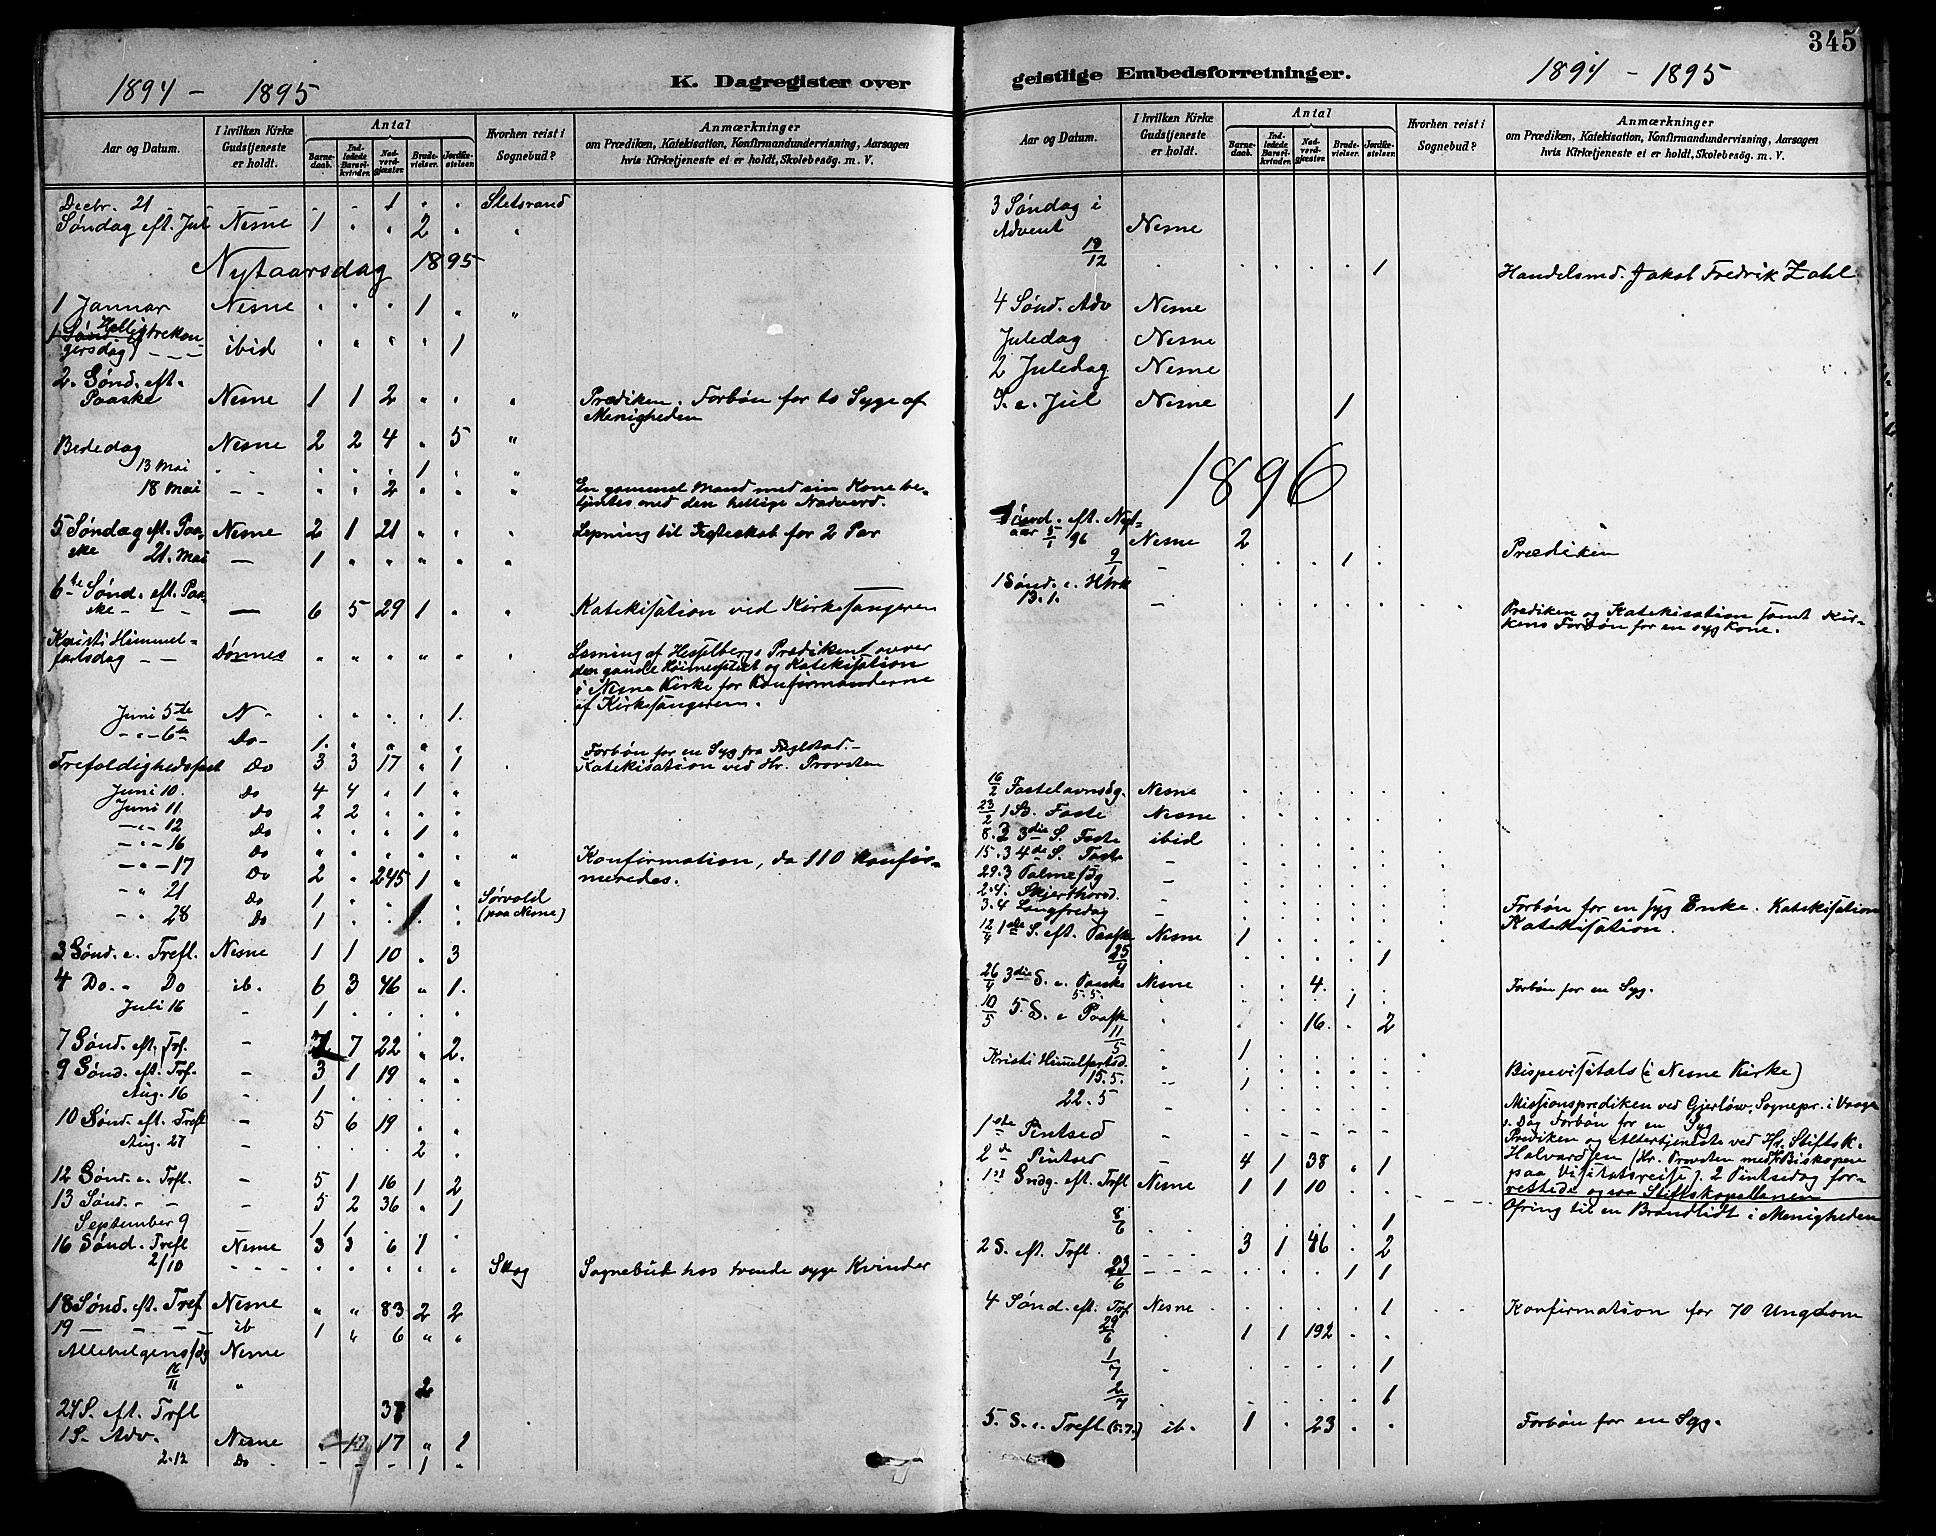 345
1894 - 1895
K. Dagregister over
Aar og Datum.
I hvilken Kirke Gudstjeneste er holdt.
Antal
Barnedaab.
Indledede Barselkvinder.
Nadverdgjæster.
Brudevielser.
Jordfæstelser.
Hvorhen reist i Sognebud?
Anmærkninger
om Prædiken, Katekisation, Konfirmandundervisning, Aarsagen
hvis Kirketjeneste ei er holdt, Skolebesøg. m. V.
Decbr. 21 - - . . 1 . . Sletsrand
Søndag eft. Jul Nesne 1 . . 2 . "
Nytaarsdag 1895
1 Januar Nesne . . . 1 . "
Hellig trekon-
gersdag - - - ibid " " " " 1
2. Sønd. eft.
Paaske Nesne 1 1 2 " . " Prædiken. Forbøn for to Syge af
Menigheden
Bededag Nesne 2 2 4 . 5 "
13 Mai - - . . . 1 . "
18 Mai - - " . 2 . . " En gammel Mand med sin Kone be-
tjentes med den hellige Nadverd.
5 Søndag eft. Paa- Nesne 2 1 21 " . " Lysning til Ægteskab for 2 Par
ske 21. Mai — 1 " " " " "
6te Sønd. eft. Paa-
ske - - - — 6 5 29 1 . " Katekisation ved Kirkesangeren
Kristi Himmel-
fartsdag - - Dønnes " " " " " . Læsning af Hesselbergs Prædiken over
i Nesne Kirke for Konfirmanderne
af Kirkesangeren.
Juni 5te N- . . . . 1.
- " - 6te Do- 1. " " " "
Forbøn for en Syg fra
Trefoldighedsfest Do 3 3 17 " 1 . Katekisation ved Hr. Provsten
Juni 10. Do 4 4 . 1 "
Juni 11 Do 2 2 " . .
- " - 12 Do " . . 1 "
- " - 16 Do " . . . . " Konfirmation, da 110 konfir-
- " - 17 Do 2 . 245 1 " meredes.
- " 21 Do 1 . . . . Sørvold
- " 28 Do 1 . . 1 . (paa Nesne)
3 Sønd. e. Trefl. Nesne 1 1 10 . 3
4 Do. " Do ib. 6 3 46 " 1.
Juli 16 - 1 . . . .
7 Sønd. eft. Trf. - 7 7 22 " 2.
9 Sønd. eft. Trf. - 3 1 19 " .
Aug. 16 - 1 . . . .
10 Sønd. eft. Trefl - 5 6 19 . .
Aug. 27 - . . . 2 .
12 Sønd. e. Trfl. - 5 1 16 1 2
13 Sønd. - - - 5 2 36 " 1
September 9 - 1 1 . . .
16 Sønd. Trefl Nesne 3 3 6 1 .
2/10 - - - - " . " . " Skog Sognebud hos tvende syge Kvinder
18 Sønd. eft. Tref Nesne " " 83 2 2
19 — - - - ib 1 " 6 " "
Allehelgensdg Nesne
" 2
24 S. eft. Trfl 37
1 S. Adv. Nesne 17 " 1
2.12 Do - - - 1 "
geistlige Embedsforretninger.
1894 - 1895
Aar og Datum.
I hvilken Kirke Gudstjeneste er holdt.
Antal
Barnedaab.
Indledede Barselkvinder.
Nadverdgjæster.
Brudevielser.
Jordfæstelser.
Hvorhen reist i Sognebud?
Anmærkninger
om Prædiken, Katekisation, Konfirmandundervisning, Aarsagen
hvis Kirketjeneste ei er holdt, Skolebesøg. m. V.
3 Søndag i
Advent Nesne
19/12 . . . . . 1 Handelsmd. Jakob Fredrik Zahl
4 Sønd. Adv Nesne
Juledag Nesne
2 Juledag Nesne
S. e. Jul Nesne 1
1896
Sønd. eft. Nyt-
aar 5/1 96 Nesne 2 Prædiken
9/1 - 1 .
1 Sønd. e. H3rk
13.1. — . . . . . . Prediken og Katekisation samt Kir-
kens Forbøn for en syg Kone.
16/2 Fastelavnsdg. Nesne . . . . .
23/2 1 S. Faste Nesne . . . . .
8.3 3die S. Faste ibid . . . . .
15.3 4de S. Faste
29.3 Palmesdg —
2.4. Skjerthorsd.
3.4 Langfredag — Forbøn for en syg Enke. Katekisation
12/4 1ste S. eft. Paaske Nesne 1 . . . . Katekisation.
25/4 . 1
26/4 3die S. e. Paaske Nesne . . 4. . . Forbøn for en Syg.
5.5. 1
10/5 5. S. e Paask . . 16. . 2
11/5 . 1
Kristi Himmelfartsd.
15.5. - 1 Bispevisitats (i Nesne Kirke)
22.5 Missionsprediken ved Gjerløw, Sognepr. i Vaage
s. Dag Forbøn for en Syg
1ste Pintsed - - - - - - Prediken og Altertjeneste ved Hr. Stiftsk.
2de Pintsed - 4 1 38 " 1 Halvardsen (Hr. Provsten med Hr Biskopen
1ste Sndg. eft. Trfl Nesne 1 1 10 . . paa Visitatsreise). 2 Pintsedag for-
rettede ogsaa Stiftskapellanen
8/6 1 Ofring til en Brandlidt i Menigheden
2 S. eft. Trfl. - - - 3 1 46 . 2
23/6 - - - - . . . 1 1
4 Sønd. eft. Trf Nesne . . . . 1 Konfirmation for 70 Ungdom
29/6 . 1 1 192 . .
1/7 . 1
2/7 . 1
5. S. e. Trefl (5.7.) ib. 1 . 23 . . Forbøn for en Syg.